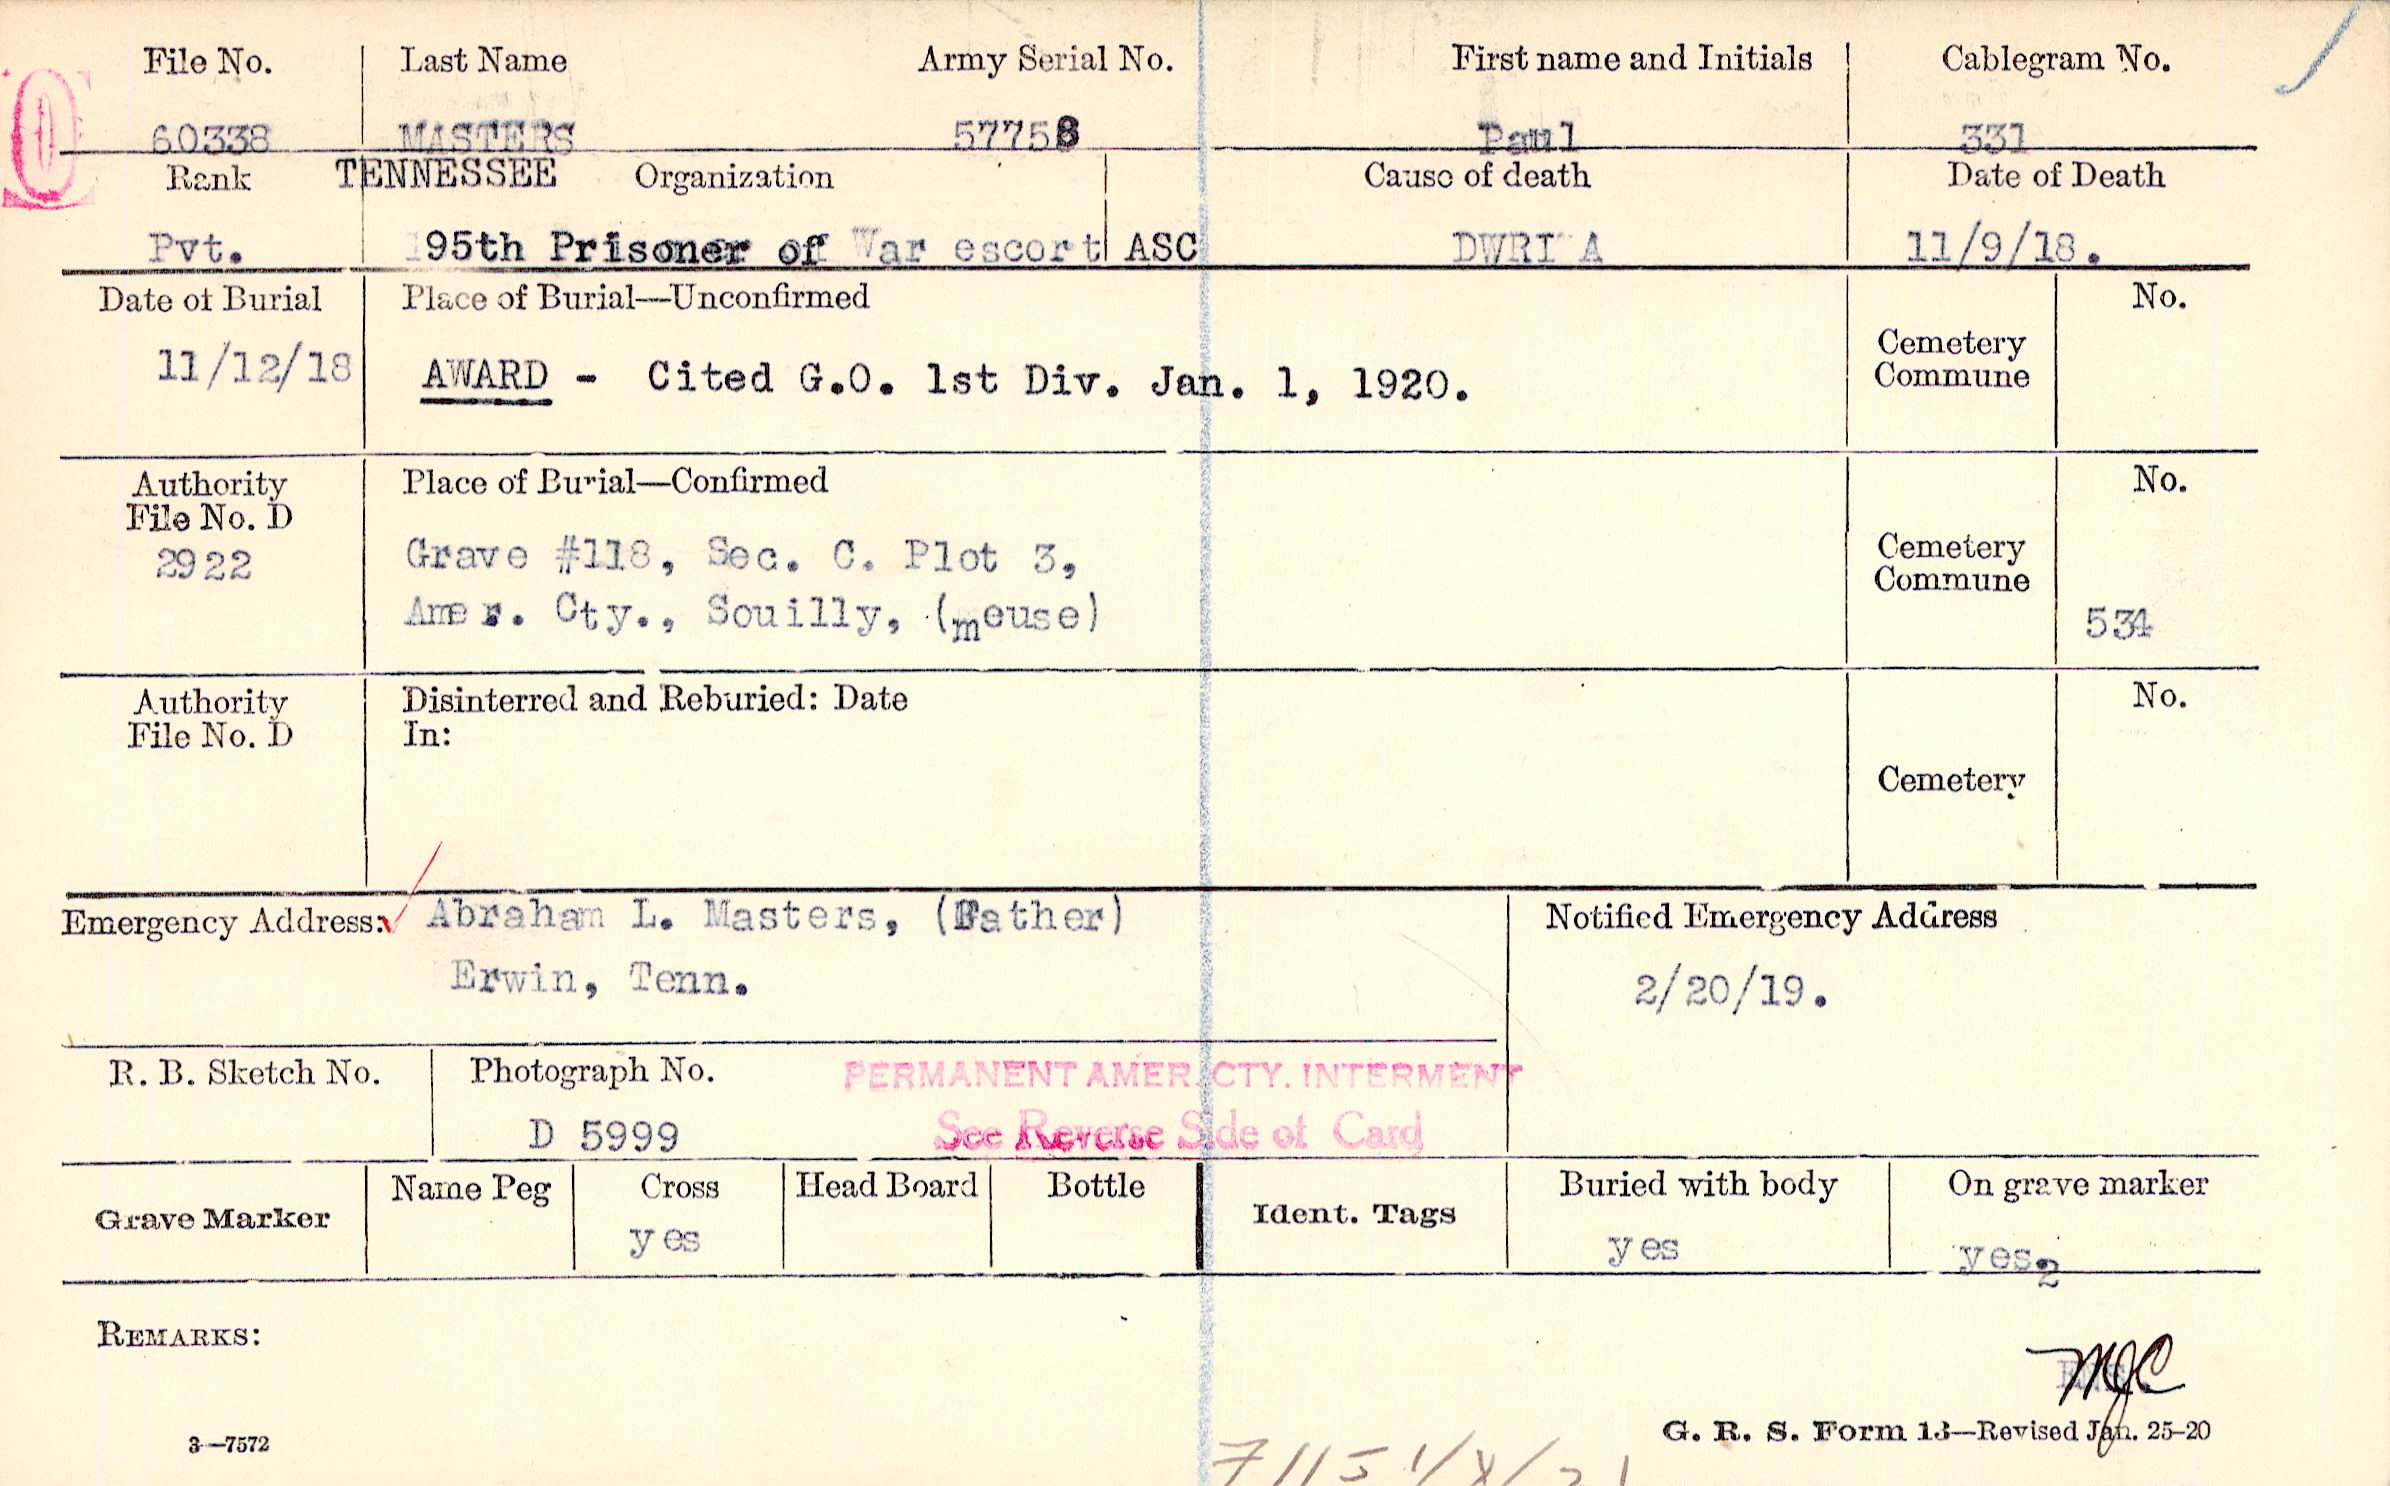 File No. Last Name Army Serial No. First name and Initials Cablegram No.
60338 MASTERS 57758 Paul 331
Rank TENNESSEE Organization Cause of death Date of Death
Pvt. 195th Prisoner of War escort ASC DWRI A 11/9/18.
Date of Burial Place of Burial—Unconfirmed No.
11/12/18 AWARD - Cited G.O. 1st Div. Jan. 1, 1920. Cemetery
Commune
Authority Place of Burial—Confirmed No.
File No. D
2922 Grave #118, Sec. C. Plot 3, Cemetery
Commune
Amer. Cty., Souilly, (meuse) 534
Authority Disinterred and Reburied: Date No.
File No. D In:
Cemetery
Emergency Address: Abraham L. Masters, (Father) Notified Emergency Address
Erwin, Tenn. 2/20/19.
R. B. Sketch No. Photograph No. PERMANENT AMER. CTY. INTERMENT
D 5999 See Reverse Side of Card
Name Peg Cross Head Board Bottle Buried with body On grave marker
Grave Marker Ident. Tags
yes yes yes2
REMARKS:
MJC
3—7572 G. R. S. Form 13—Revised Jan. 25-20